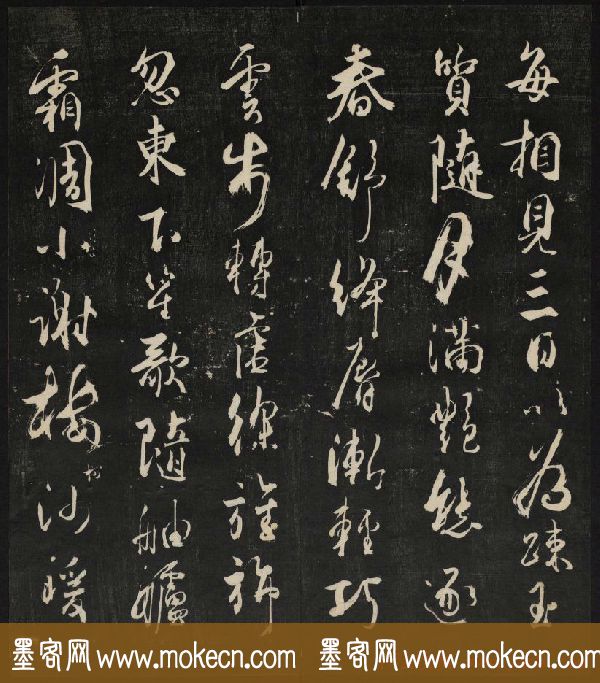 每相見三日以為疎玉
質隨月滿艷態逐
春舒絳脣漸輕巧
雲步轉虛徐旌旆
忽東下笙歌隨舳艫
霜凋小謝樓樹沙暖
墨客网 www.mokecn.com 墨客网 www.mokecn.com